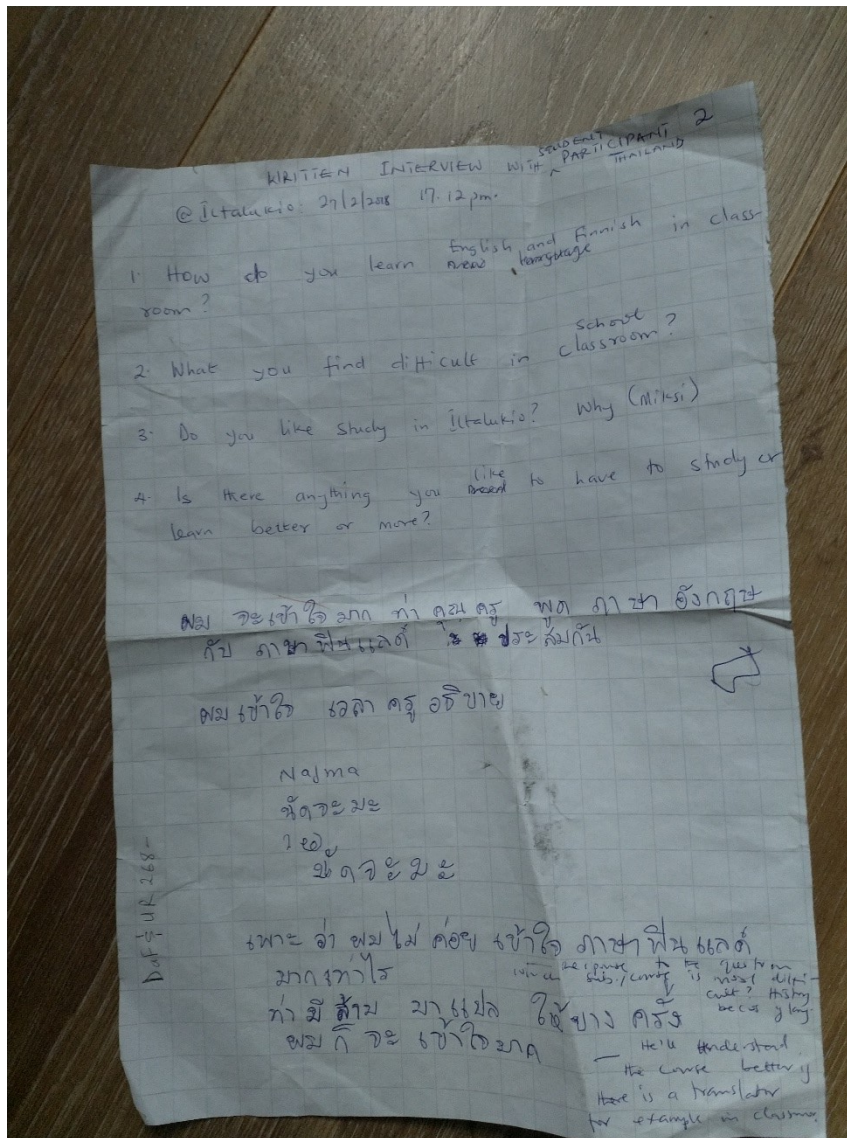 WRITTEN INTERVIEW WITH STUDENT PARTICIPANT 2
THAILAND
@ Iltalukio: 27/2/2018 17.12 pm.
1. How do you learn English and Finnish in class-
room?
2. What you find difficult in school
classroom?
3. Do you like study in Iltalukio? Why (Miksi)
4. Is there anything you like to have to study or
learn better or more?
ผม จะเข้าใจ มาก ท่า คุณ ครู พูด ภาษา อังกฤษ
กับ ภาษาฟินแลด์ ประสมกัน
ผม เข้าใจ เวลา ครู อธิบาย
Najma
นัดจะมะ
นัดจะมะ
เพาะ ว่า ผม ไม่ ค่อย เข้าใจ ภาษา ฟินแลด์
มากเท่าไร
ท่า มี ล้าม มาแปล ให้ บาง ครั้ง
ผม ก็ จะ เข้าใจมาก
response to the question
is most diffi-
cult? History
becus of lang.
— He'll understand
the course better if
there is a translator
for example in classroom.